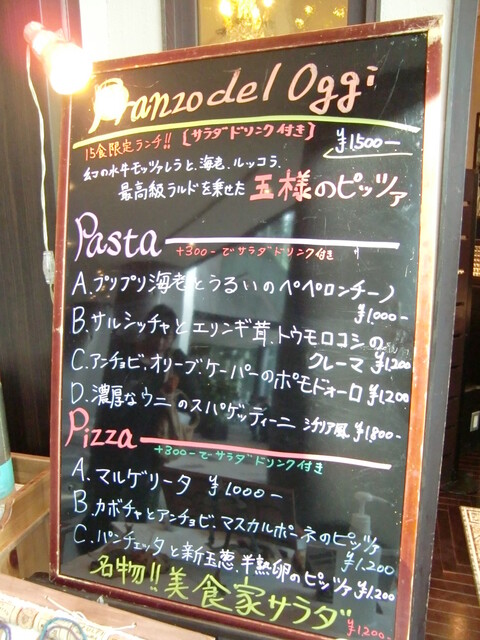 Pranzo del Oggi
15食限定ランチ!! [サラダドリンク付き] ¥1,500-
幻の水牛モッツァレラと、海老、ルッコラ、
最高級ラルドを乗せた 王様のピッツァ
Pasta +300-でサラダドリンク付き
A. プリプリ海老とうるいのペペロンチーノ
¥1,000-
B. サルシッチャとエリンギ茸、トウモロコシの
クレーマ ¥1,200
C. アンチョビ、オリーブケーパーのポモドォーロ ¥1,200
D. 濃厚なウニのスパゲッティーニ シチリア風 ¥1,800-
Pizza +300-でサラダドリンク付き
A. マルゲリータ ¥1,000-
B. カボチャとアンチョビ、マスカルポーネのピッツァ
¥1,200
C. パンチェッタと新玉葱、半熟卵のピッツァ ¥1,200
名物!!美食家サラダ
¥1,200-